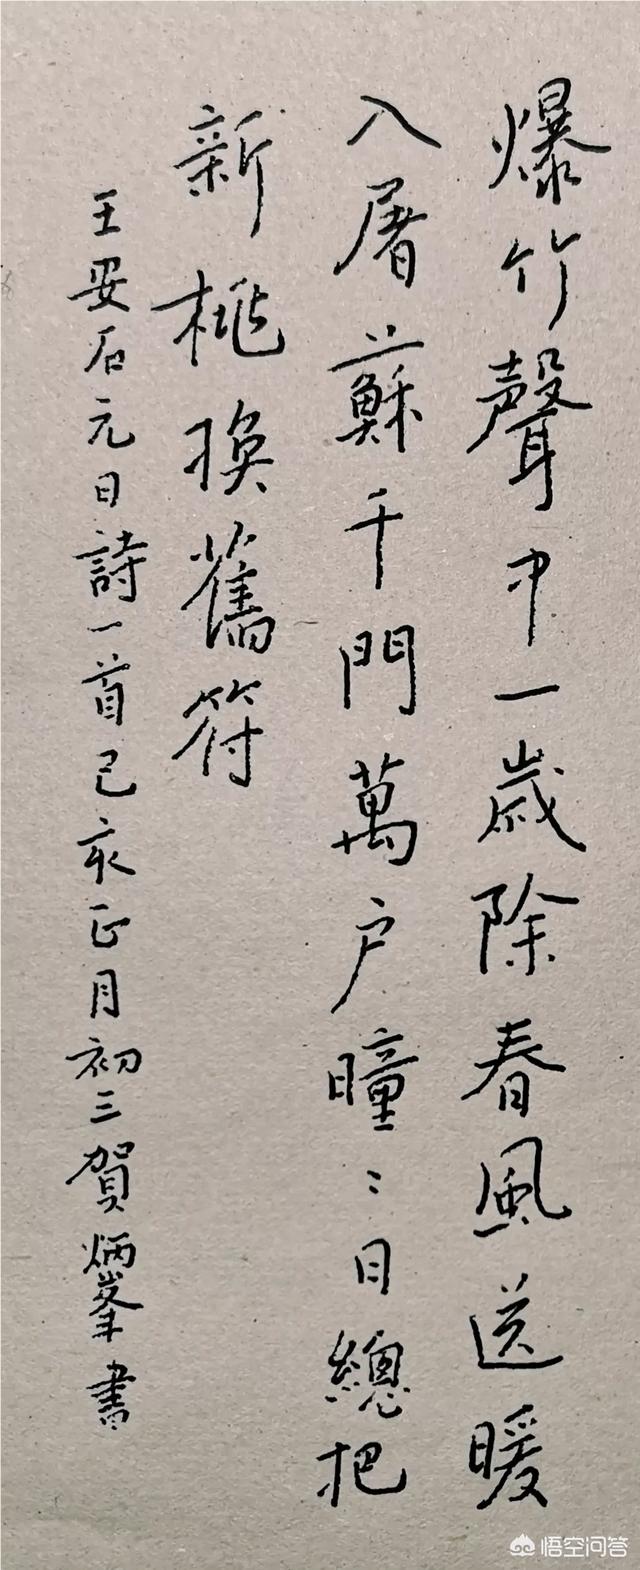 爆竹聲中一歲除春風送暖
入屠蘇千門萬户曈〻日總把
新桃換舊符
王安石元日詩一首己亥正月初三賀炳峯書
悟空问答